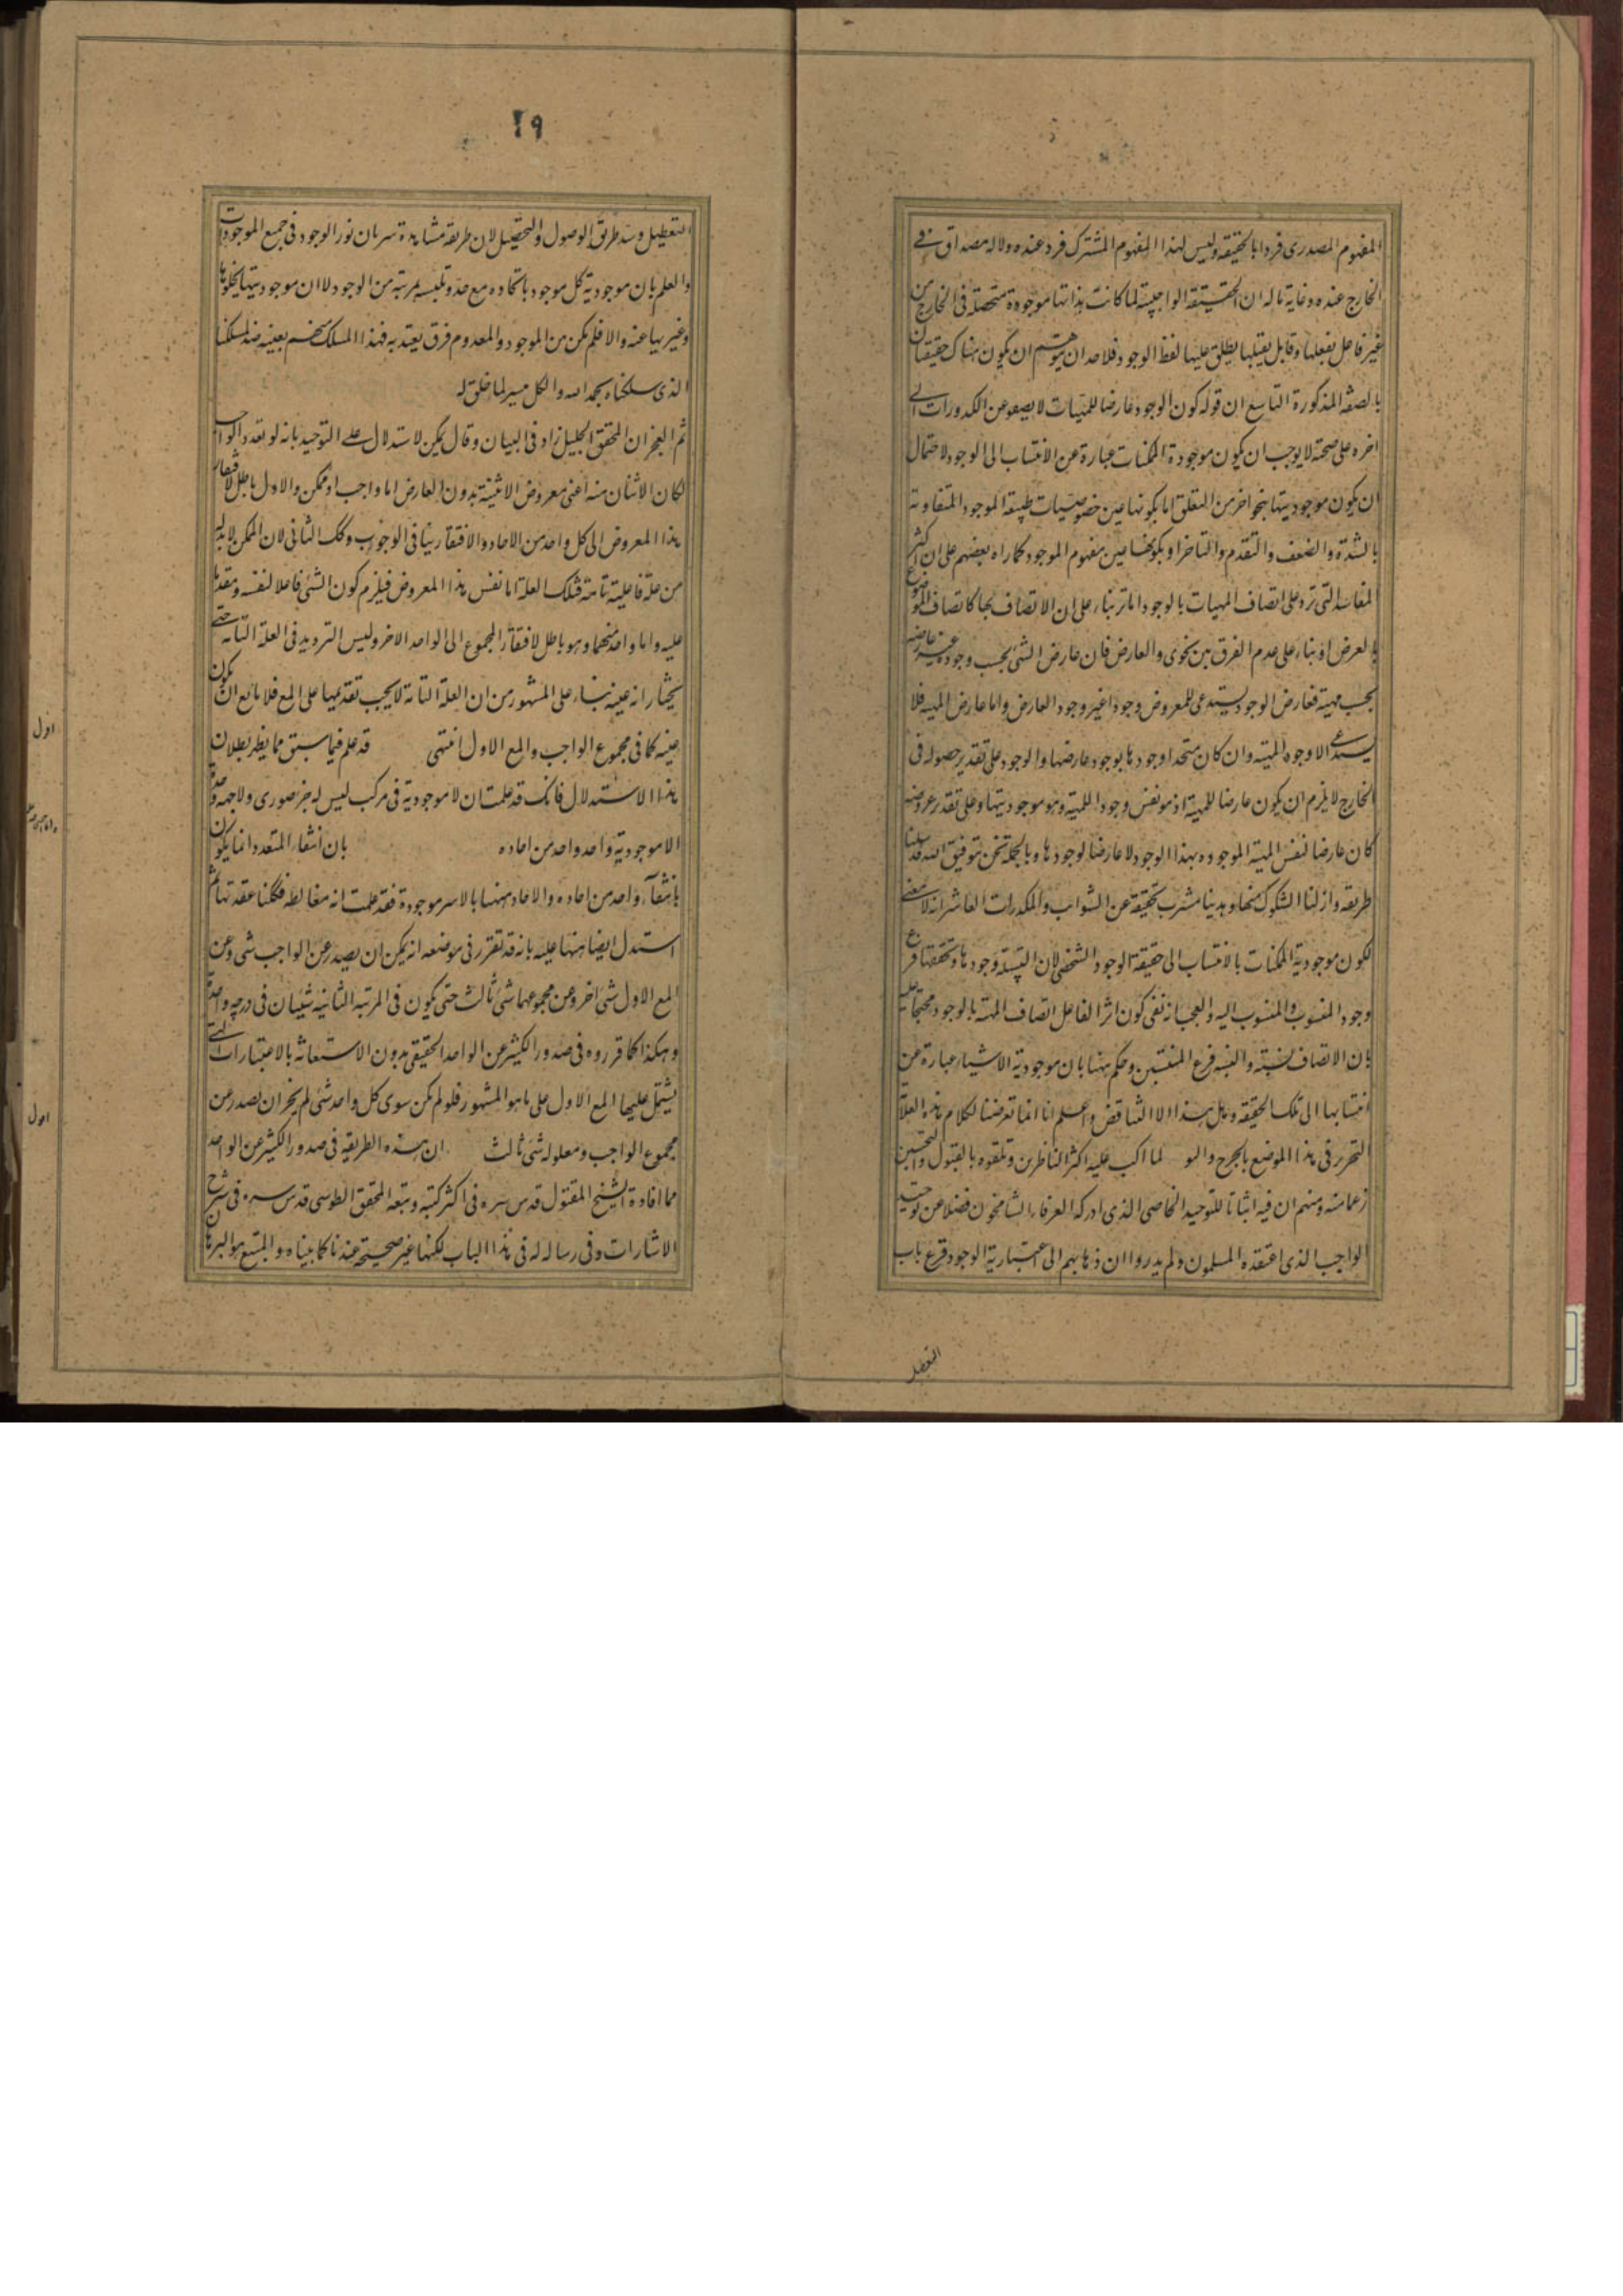 المفهوم المصدرى فردا بالحقيقة وليس لهذا المفهوم المشترك فرد عنده ولا له مصداق فى
الخارج عنده وغاية ماله ان الحقيقة الواجبية لما كانت بذاتها موجودة متحصلة فى الخارج من
غير فاعل يفعلها وقابل يقبلها يطلق عليها لفظ الوجود فلاحد ان يتوهم ان يكون هناك حقيقتان
بالصفة المذكورة التاسع ان قوله كون الوجود عارضا للمهيات لا يصفو عن الكدورات الى
اخره على صحته لا يوجب ان يكون موجودة الممكنات عبارة عن الانتساب الى الوجود لاحتمال
ان يكون موجوديتها بنحو اخر من التعلق اما بكونها عين خصوصيات طبيعة الموجود المتفاوتة
بالشدة والضعف والتقدم والتاخر او بكونها عين مفهوم الموجود كما راه بعضهم على ان اكثر
المفاسد التى ترد على اتصاف المهيات بالوجود اما ترد بناء على ان الاتصاف بها كاتصاف الموضوع
بالعرض او بناء على عدم الفرق بين نحوى والعارض فان عارض الشئ بحسب وجوده غير عارضه
بحسب مهيته فعارض الوجود يستدعى للمعروض وجودا غير وجود العارض واما عارض المهية فلا
يستدعى الا وجود المهية وان كان متحدا وجودها بوجود عارضها والوجود على تقدير حصوله فى
الخارج لا يلزم ان يكون عارضا للمهية اذ هو نفس وجود المهية وهو موجوديتها وعلى تقدير عروضه
كان عارضا لنفس المهية الموجوده بهذا الوجود لا عارضا لوجودها وبالجملة نحن بتوفيق الله قد سلكنا
طريقه وازلنا الشكوك عنها وهدينا مشرب تحقيقه عن الشوائب والمكدرات العاشر انه لا معنى
لكون موجودية الممكنات بالانتساب الى حقيقة الوجود الشخصى لان النسبة وجودها وتحققها فرع
وجود المنسوب والمنسوب اليه والعجب انه نفى كون اثر الفاعل اتصاف المهية بالوجود محتجا عليه
بان الاتصاف نسبة والنسبة فرع المنتسبين وحكم ههنا بان موجودية الاشياء عبارة عن
انتسابها الى تلك الحقيقة وهل هذا الا التناقض واعلم انا انما تعرضنا لكلام هذه العلامة
التحرير فى هذا الموضع بالجرح والـو لما اكب عليه اكثر الناظرين وتلقوه بالقبول والتحسين
زعما منه ومنهم ان فيه اثباتا للتوحيد الخاصى الذى ادركه العرفاء الشامخون فضلا عن توحيد
الواجب الذى اعتقده المسلمون ولم يدروا ان ذهابهم الى اعتبارية الوجود قرع باب
التعطيل
٢٩
التعطيل وسد طريق الوصول والتحصيل لان طريقه مشاهدة سريان نور الوجود فى جميع الموجودات
والعلم بان موجودية كل موجود باتحاده مع حد وتلبسه بمرتبة من الوجود لا ان موجوديتها بخلوها
وغيريتها عنه والا فلم يكن من الموجود والمعدوم فرق يعتد به فهذا المسلك منهم بعينه ضد مسلكنا
الذى سلكناه بحمد الله والكل ميسر لما خلق له
ثم العجز ان المحقق الجليل زاد فى البيان وقال يمكن الاستدلال على التوحيد بانه لو تعدد الواجب
لكان الاثنان منه اعنى معروض الاثنينة بدون العارض اما واجب او ممكن والاول باطل لافتقار
هذا المعروض الى كل واحد من الاحاد والافتقار ينافى الوجوب وكك الثانى لان الممكن لا بد له
من علة فاعلية تامة فتلك العلة اما نفس هذا المعروض فيلزم كون الشئ فاعلا لنفسه ومتقدما
عليه واما واحد منهما وهو باطل لافتقار المجموع الى الواحد الاخر وليس الترديد فى العلة التامة حتى
يختار انه عينه بناء على المشهور من ان العلة التامة لا يجب تقديمها على المع فلا مانع ان يكون
عينه كما فى مجموع الواجب والمع الاول انتهى قد علم فيما سبق ما يظهر بطلان
هذا الاستدلال فانك قد علمت ان لا موجودية فى مركب ليس له جزء صورى ولا جهة وحدة
الا موجودية واحد واحد من احاده بان انتفاء المتعدد انما يكون
بانتفاء واحد من احاده والاحاد ههنا بالاسر موجودة فقد علمت انه مغالطة فككنا عقدتها ثم
استدل ايضا ههنا عليه بانه قد تقرر فى موضعه انه يمكن ان يصدر عن الواجب شى وعن
المع الاول شى اخر وعن مجموعهما شى ثالث حتى يكون فى المرتبة الثانية شيئان فى درجة واحدة
وهكذا كما قرروه فى صدور الكثير عن الواحد الحقيقى بدون الاستعانة بالاعتبارات التى
يشتمل عليها المع الاول على ما هو المشهور فلو لم يكن سوى كل واحد شئ لم يجز ان يصدر عن
مجموع الواجب ومعلوله شئ ثالث ان هذه الطريقه فى صدور الكثير عن الواحد
مما افاده الشيخ المقتول قدس سره فى اكثر كتبه وتبعه المحقق الطوسى قدس سره فى شرح
الاشارات وفى رسالة له فى هذا الباب لكنها غير صحيحة عندنا كما بيناه والمتبع هو البرهان
اول
اول